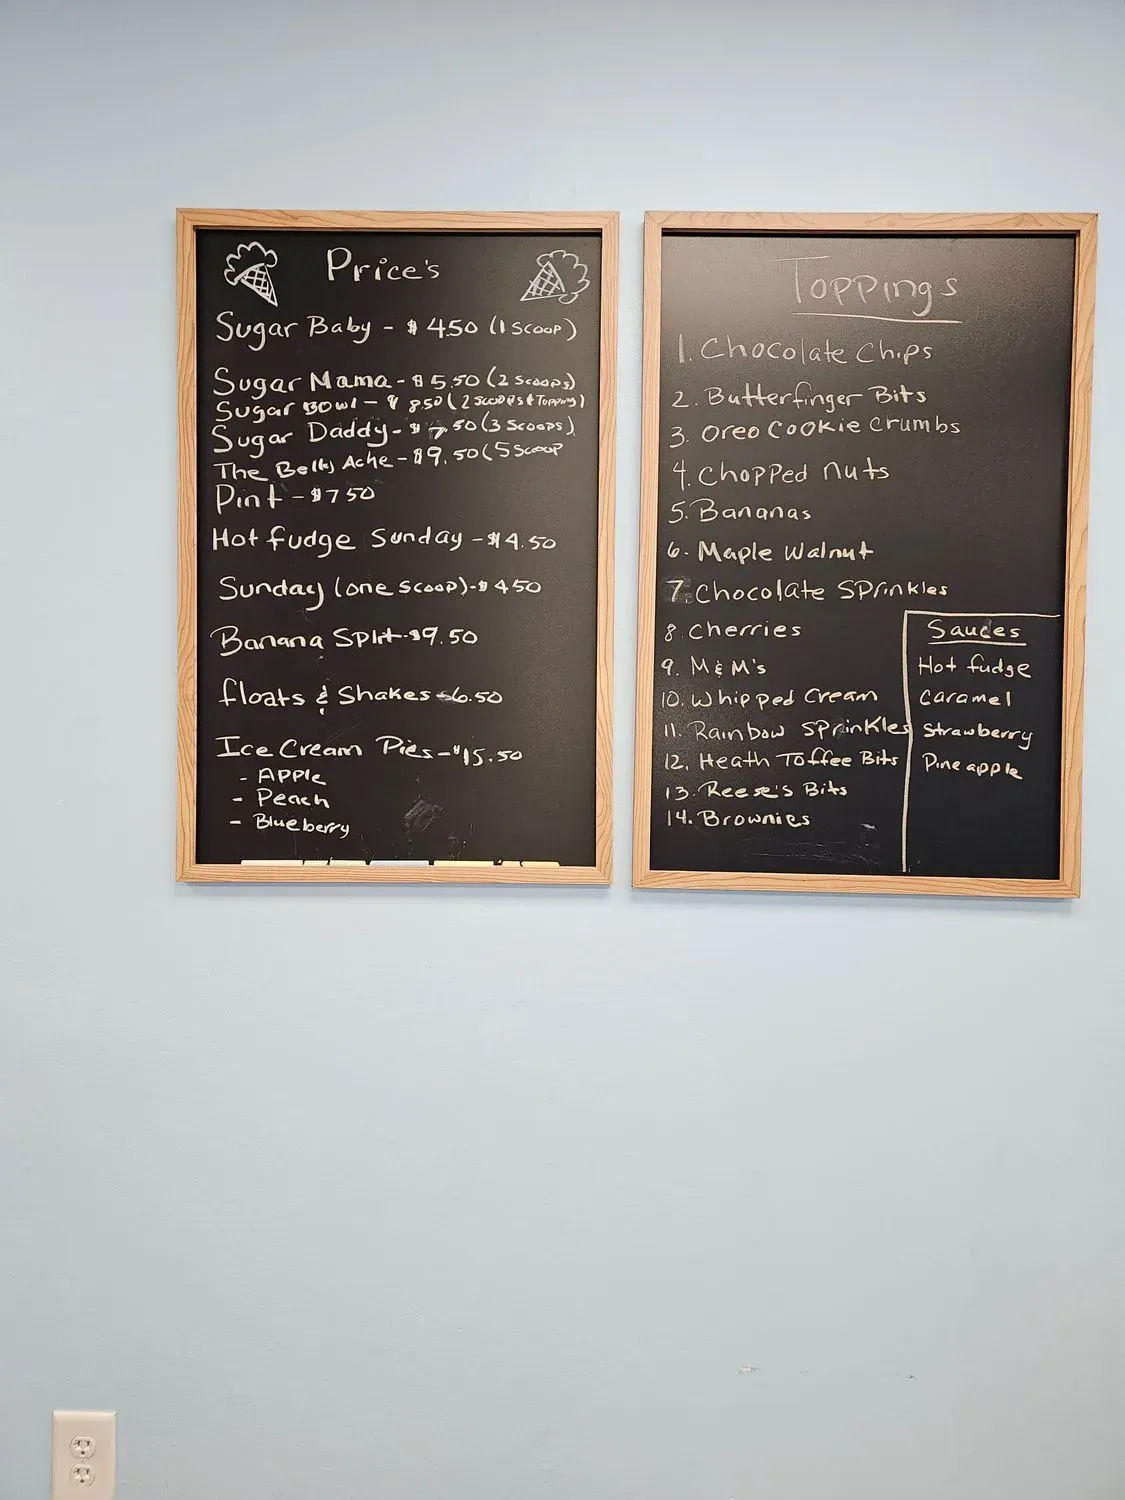 Price's
Sugar Baby - $ 4.50 (1 Scoop)
Sugar Mama - $ 5.50 (2 Scoops)
Sugar Bowl - $ 8.50 (2 Scoops & Topping)
Sugar Daddy - $ 7.50 (3 Scoops)
The Belly Ache - $9.50 (5 Scoop
Pint - $7 50
Hot fudge Sunday - $4.50
Sunday (one scoop) - $ 4 50
Banana Split - $9.50
floats & Shakes - 6.50
Ice Cream Pies - $15.50
- Apple
- Peach
- Blueberry
Toppings
1. Chocolate Chips
2. Butterfinger Bits
3. Oreo Cookie Crumbs
4. Chopped nuts
5. Bananas
6. Maple Walnut
7. Chocolate Sprinkles
8. Cherries
9. M & M's
10. Whipped Cream
11. Rainbow Sprinkles
12. Heath Toffee Bits
13. Reese's Bits
14. Brownies
Sauces
Hot fudge
Caramel
Strawberry
Pineapple